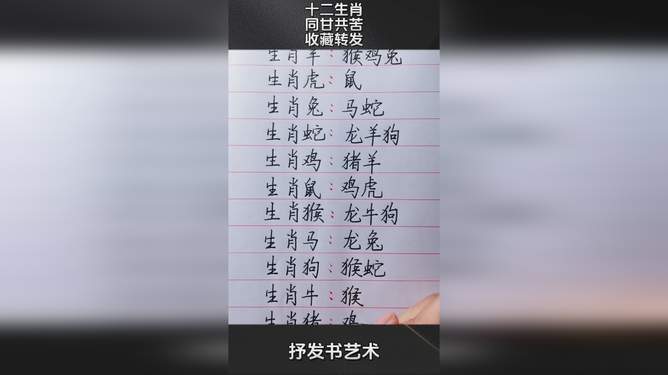 十二生肖
同甘共苦
收藏转发
生肖羊：猴鸡兔
生肖虎：鼠
生肖兔：马蛇
生肖蛇：龙羊狗
生肖鸡：猪羊
生肖鼠：鸡虎
生肖猴：龙牛狗
生肖马：龙兔
生肖狗：猴蛇
生肖牛：猴
生肖猪：鸡
抒发书艺术